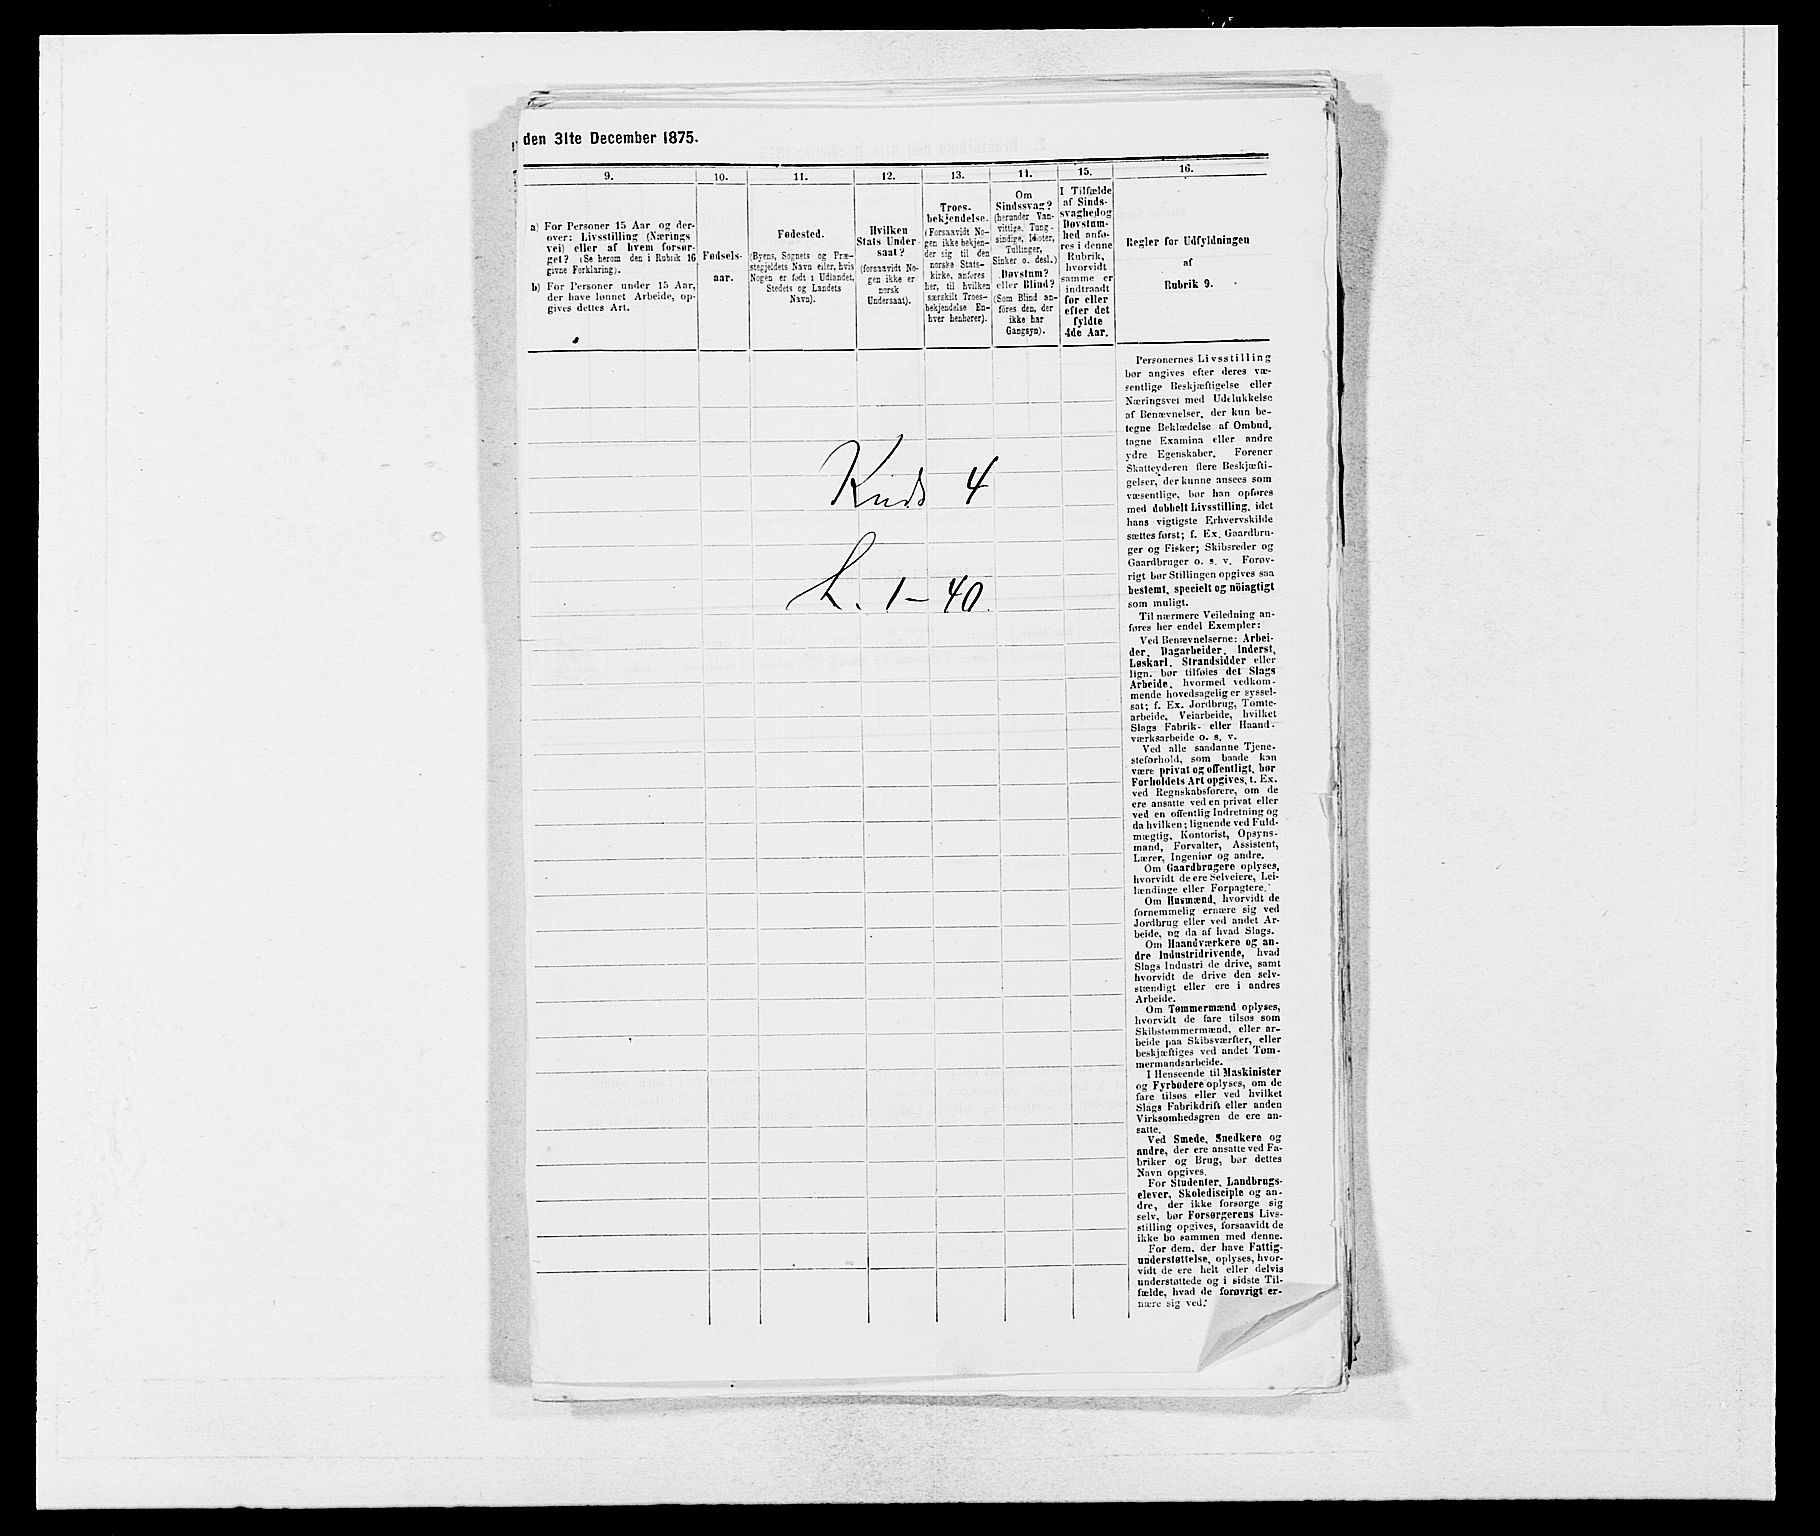 den 31te December 1875.
9.
10.
11.
12.
13.
11.
15.
16.
a) For Personer 15 Aar og der-
over: Livsstilling (Nærings
vei) eller af hvem forsør-
get? (Se herom den i Rubrik 16
givne Forklaring).
b) For Personer under 15 Aar,
der have lønnet Arbeide, op-
gives dettes Art.
Fødsels-
aar.
Fødested.
(Byens, Sognets og Præ-
stegjeldets Navn eller, hvis
Nogen er født i Udlandet,
Stedets og Landets
Navn).
Hvilken
Stats Under-
saat?
(forsaavidt No-
gen ikke er
norsk
Undersaat).
Troes-
bekjendelse.
(Forsaavidt No-
gen ikke bekjen-
der sig til den
norske Stats-
kirke, anføres
her, til hvilken
særskilt Troes-
bekjendelse En-
hver henhører).
Om
Sindssvag?
(herunder Van-
vittige, Tung-
sindige, Idioter,
Tullinger,
Sinker o. desl.)
Døvstum?
eller Blind?
(Som Blind an-
føres den, der
ikke har
Gangsyn).
I Tilfælde
af Sinds-
svaghedog
Døvstum-
hed anfø-
res i denne
Rubrik,
hvorvidt
samme er
indtraadt
før eller
efter det
fyldte
4de Aar.
Regler for Udfyldningen
af
Rubrik 9.
Personernes Livsstilling
bør angives efter deres væ-
sentlige Beskjæftigelse eller
Næringsvei med Udelukkelse
af Benævnelser, der kun be-
tegne Beklædelse af Ombud,
tagne Examina eller andre
ydre Egenskaber. Forener
Skatteyderen flere Beskjæfti-
gelser, der kunne ansees som
væsentlige, bør han opføres
med dobbelt Livsstilling, idet
hans vigtigste Erhvervskilde
sættes først; f. Ex. Gaardbru-
ger og Fisker; Skibsreder og
Gaardbruger o. s. v. Forøv-
rigt bør Stillingen opgives saa
bestemt, specielt og nöiagtigt
som muligt.
Til nærmere Veiledning an-
føres her endel Exempler:
Ved Benævnelserne: Arbei-
der, Dagarbeider, Inderst,
Løskarl, Strandsidder eller
lign. bør tilføies det Slags
Arbeide, hvormed vedkom-
mende hovedsagelig er syssel-
sat; f. Ex. Jordbrug, Tomte-
arbeide, Veiarbeide, hvilket
Slags Fabrik- eller Haand-
værksarbeide o. s. v.
Ved alle saadanne Tjene-
steforhold, som baade kan
være privat og offentligt, bør
Forholdets Art opgives, t. Ex.
ved Regnskabsførere, om de
ere ansatte ved en privat eller
ved en offentlig Indretning og
da hvilken; lignende ved Fuld-
mægtig, Kontorist, Opsyns-
mand, Forvalter, Assistent,
Lærer, Ingeniør og andre.
Om Gaardbrugere oplyses,
hvorvidt de ere Selveiere, Lei-
lændinge eller Forpagtere.
Om Husmænd, hvorvidt de
fornemmelig ernære sig ved
Jordbrug eller ved andet Ar-
beide, og da af hvad Slags.
Om Haandværkere og an-
dre Industridrivende, hvad
Slags Industri de drive, samt
hvorvidt de drive den selv-
stændigt eller ere i andres
Arbeide.
Om Tømmermænd oplyses,
hvorvidt de fare tilsøs som
Skibstømmermænd, eller ar-
beide paa Skibsværfter, eller
beskjæftiges ved andet Tøm-
mermandsarbeide.
I Henseende til Maskinister
og Fyrbødere oplyses, om de
fare tilsøs eller ved hvilket
Slags Fabrikdrift eller anden
Virksomhedsgren de ere an-
satte.
Ved Smede, Snedkere og
andre, der ere ansatte ved Fa-
briker og Brug, bør dettes
Navn opgives.
For Studenter, Landbrugs-
elever, Skoledisciple og an-
dre, der ikke forsørge sig
selv, bør Forsørgerens Livs-
stilling opgives, forsaavidt de
ikke bo sammen med denne.
For dem, der have Fattig-
understøttelse, oplyses, hvor-
vidt de ere helt eller delvis
understøttede og i sidste Til-
fælde, hvad de forøvrigt er-
nære sig ved.
Krids 4
L. 1-40.